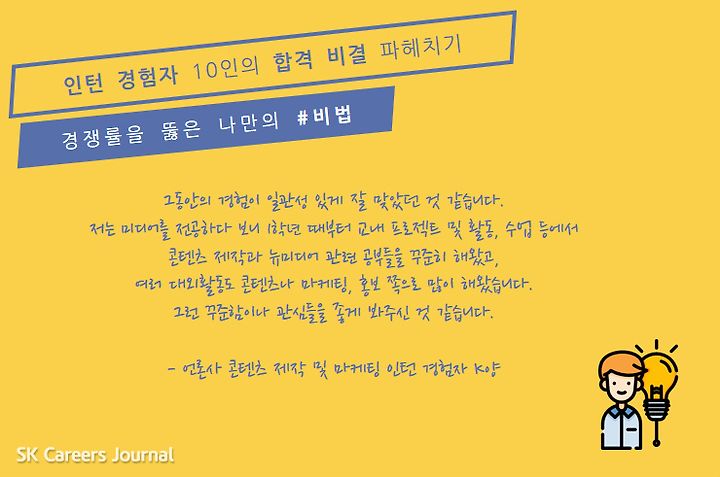 인턴 경험자 10인의 합격 비결 파헤치기
경쟁률을 뚫은 나만의 #비법
그동안의 경험이 일관성 있게 잘 맞았던 것 같습니다.
저는 미디어를 전공하다 보니 1학년 때부터 교내 프로젝트 및 활동, 수업 등에서
콘텐츠 제작과 뉴미디어 관련 공부들을 꾸준히 해왔고,
여러 대외활동도 콘텐츠나 마케팅, 홍보 쪽으로 많이 해왔습니다.
그런 꾸준함이나 관심들을 좋게 봐주신 것 같습니다.
- 언론사 콘텐츠 제작 및 마케팅 인턴 경험자 K양
SK Careers Journal